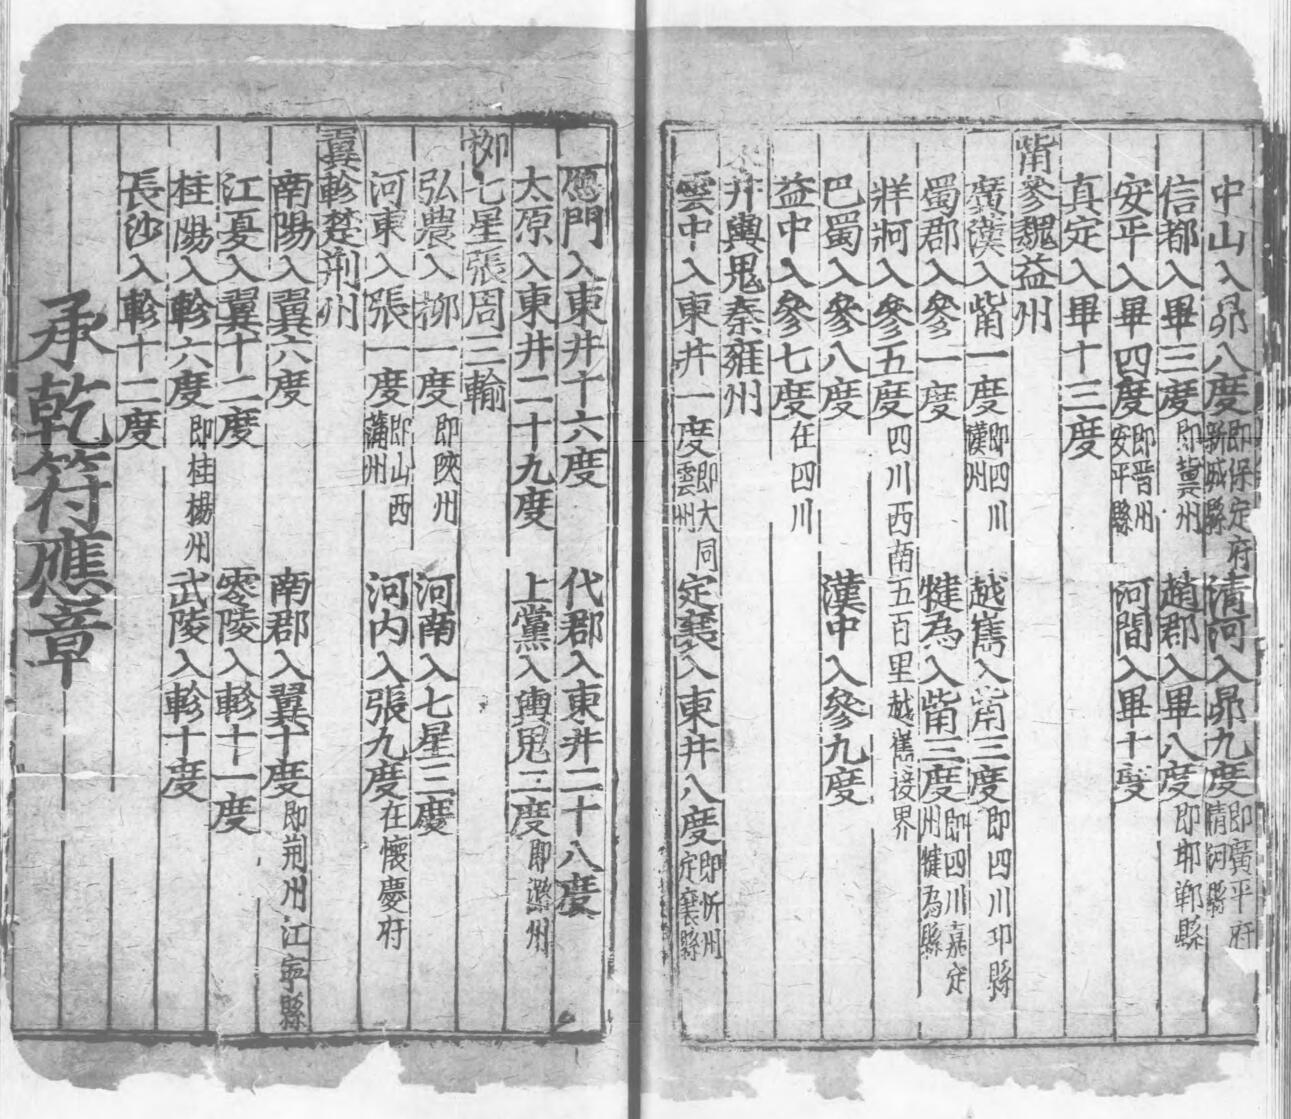 中山入昴八度即保定府新城縣 清河入昴九度即廣平府清河縣
信都入畢三度即冀州 趙郡入畢八度即邯鄲縣
安平入畢四度即晋州安平縣 河間入畢十度
真定入畢十三度
觜參魏益州
廣漢入觜一度即四川漢州 越嶲入觜三度即四川邛縣
蜀郡入參一度 犍為入觜三度即四川嘉定州犍為縣
牂牁入參五度四川西南五百里越嶲接界
巴蜀入參八度 漢中入參九度
益中入參七度在四川
井輿鬼秦雍州
雲中入東井一度即大同雲州 定襄入東井八度即忻州定襄縣
鴈門入東井十六度 代郡入東井二十八度
太原入東井二十九度 上黨入輿鬼二度即潞州
柳七星張周三輔
弘農入柳一度即陝州 河南入七星三度
河東入張一度即山西蒲州 河内入張九度在懷慶府
翼軫楚荆州
南陽入翼六度 南郡入翼十度即荆州江寧縣
江夏入翼十二度 零陵入軫十一度
桂陽入軫六度即桂楊州 武陵入軫十度
長沙入軫十二度
承乾符應章